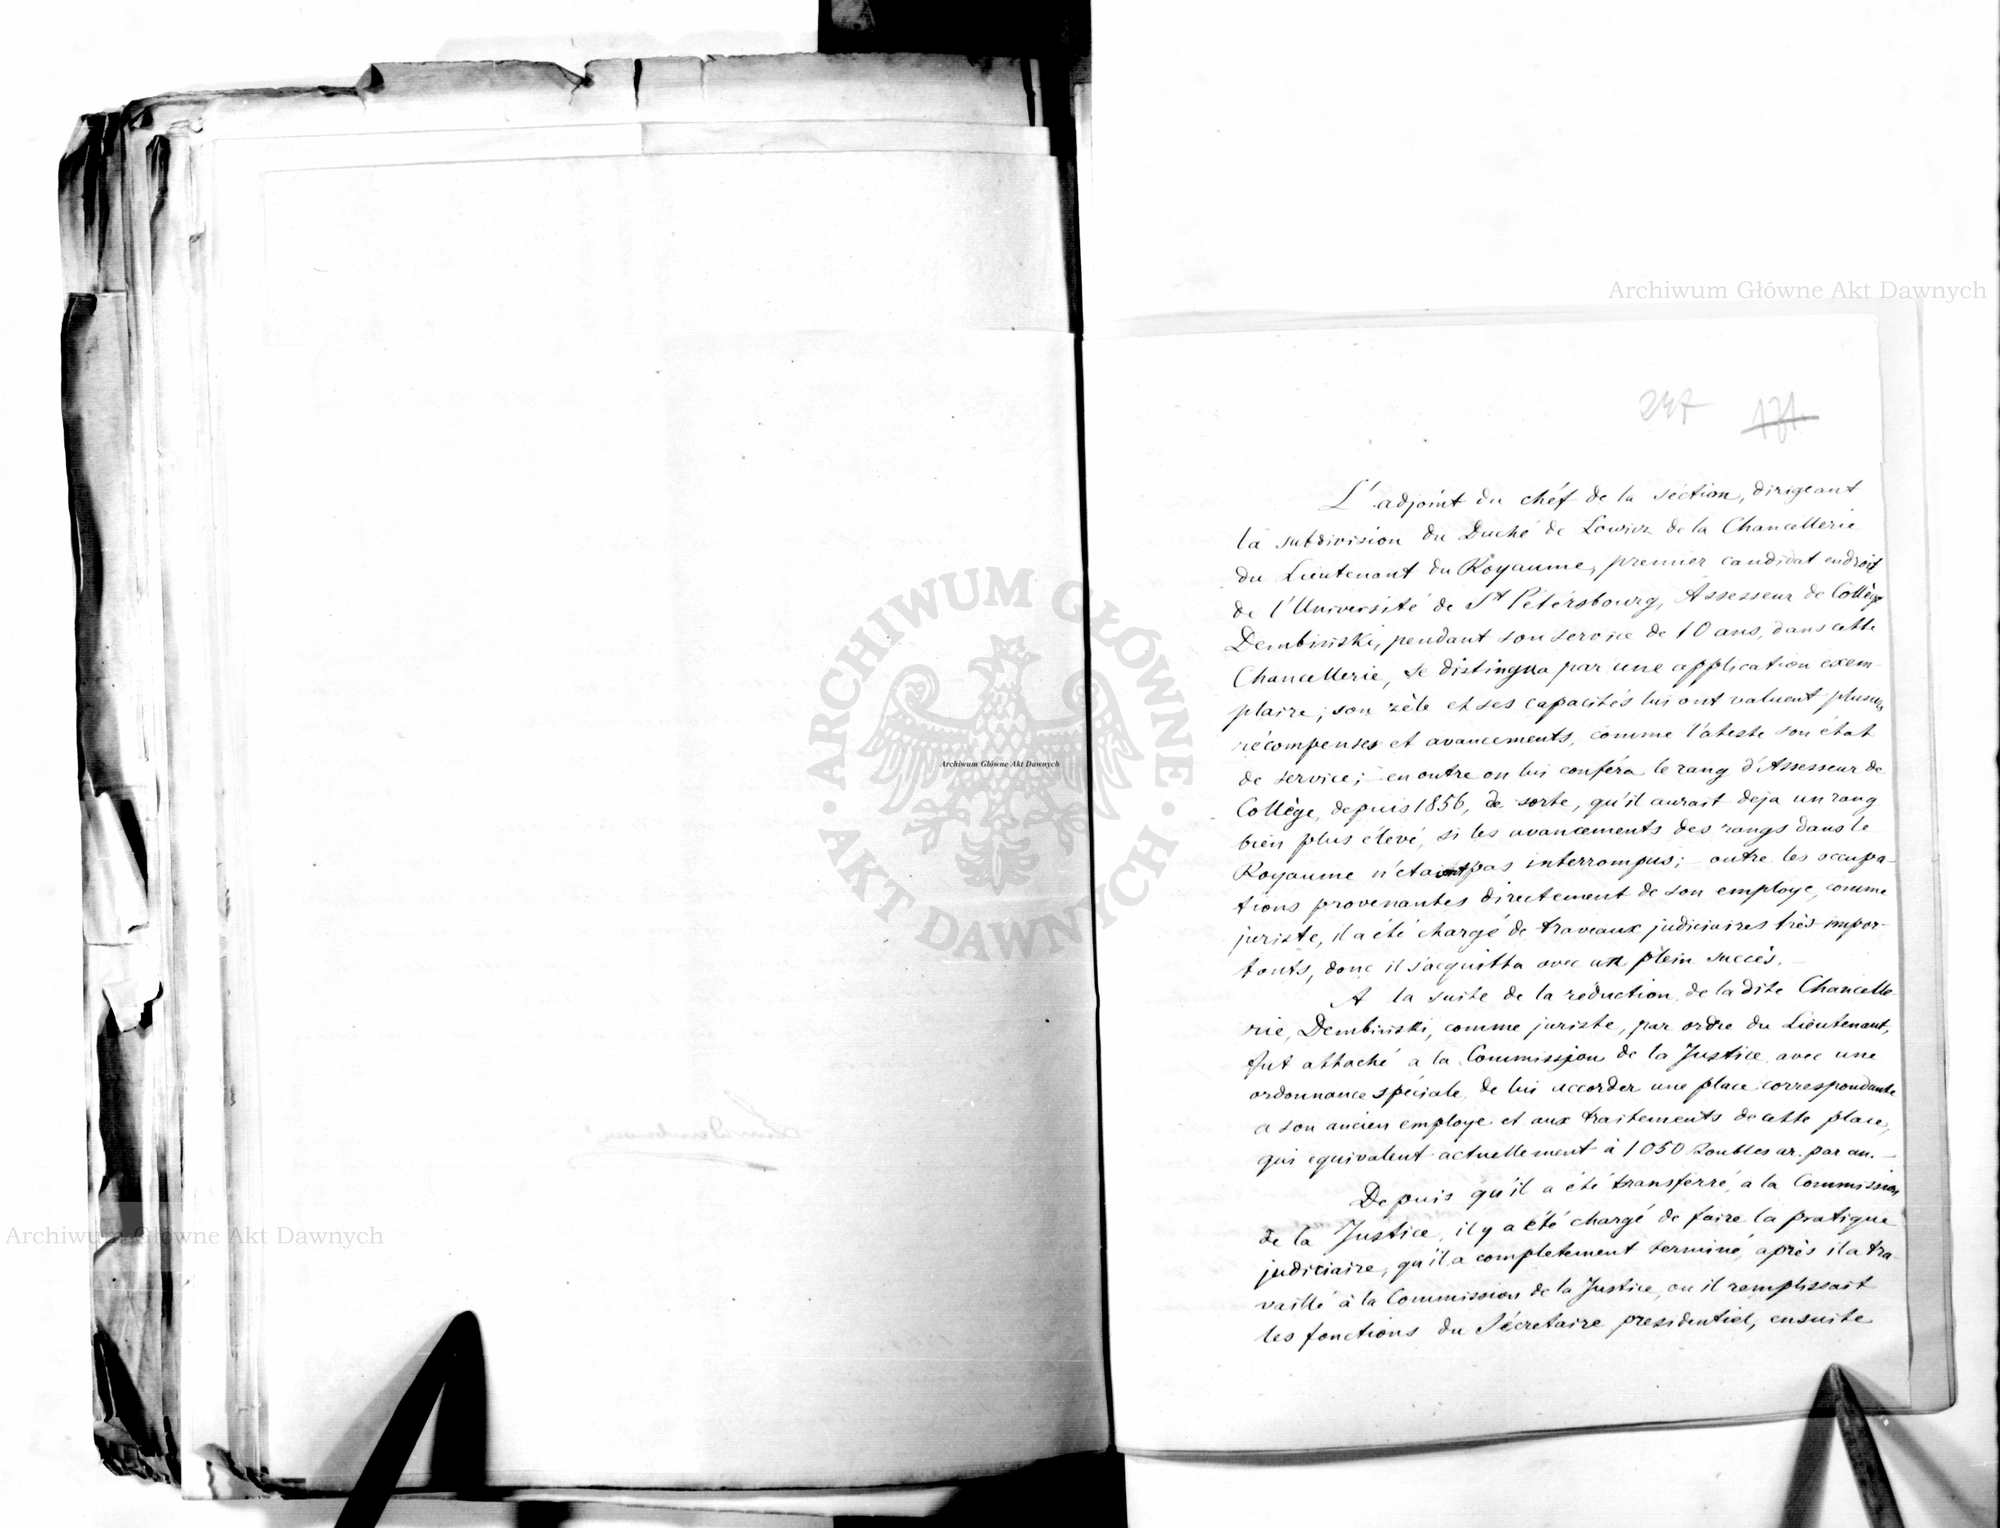 Archiwum Główne Akt Dawnych
247 171.
L'adjoint du chéf de la séction, dirigeant
la subdivision du Duché de Lowicz de la Chancellerie
du Lieutenant du Royaume, premier candidat en droit
de l'Université de St Pétérsbourg, Assesseur de Collège
Dembiński, pendant son service de 10 ans, dans cette
Chancellerie, se distingua par une application exem-
plaire; son zèle et ses capacités lui ont valuent plusieurs
récompenses et avancements, comme l'ateste son état
de service; en outre on lui conféra le rang d'Assesseur de
Collège, depuis 1856, de sorte, qu'il aurait deja un rang
bien plus élevé, si les avancements des rangs dans le
Royaume n'étaient pas interrompus; - outre les occupa-
tions provenantes directement de son employe, comme
juriste, il a été chargé de travaux judiciaires très impor-
tants, donc il s'acquitta avec un plein succès. -
A la suite de la réduction de la dite Chancelle-
rie, Dembiński, comme juriste, par ordre du Lieutenant,
fut attaché a la Commission de la Justice avec une
ordonnance spéciale de lui accorder une place correspondante
a son ancien employe et aux traitements de cette place,
qui equivalent actuellement à 1050 Roubles ar. par an. -
Depuis qu'il a été transferré a la Commission
de la Justice, il y a été chargé de faire la pratique
judiciaire, qu'il a completement terminé, après il a tra-
vaillé à la Commission de la Justice, ou il remplissait
les fonctions du Sécretaire presidentiel, ensuite
ARCHIWUM GŁÓWNE
AKT DAWNYCH
Archiwum Główne Akt Dawnych
Archiwum Główne Akt Dawnych